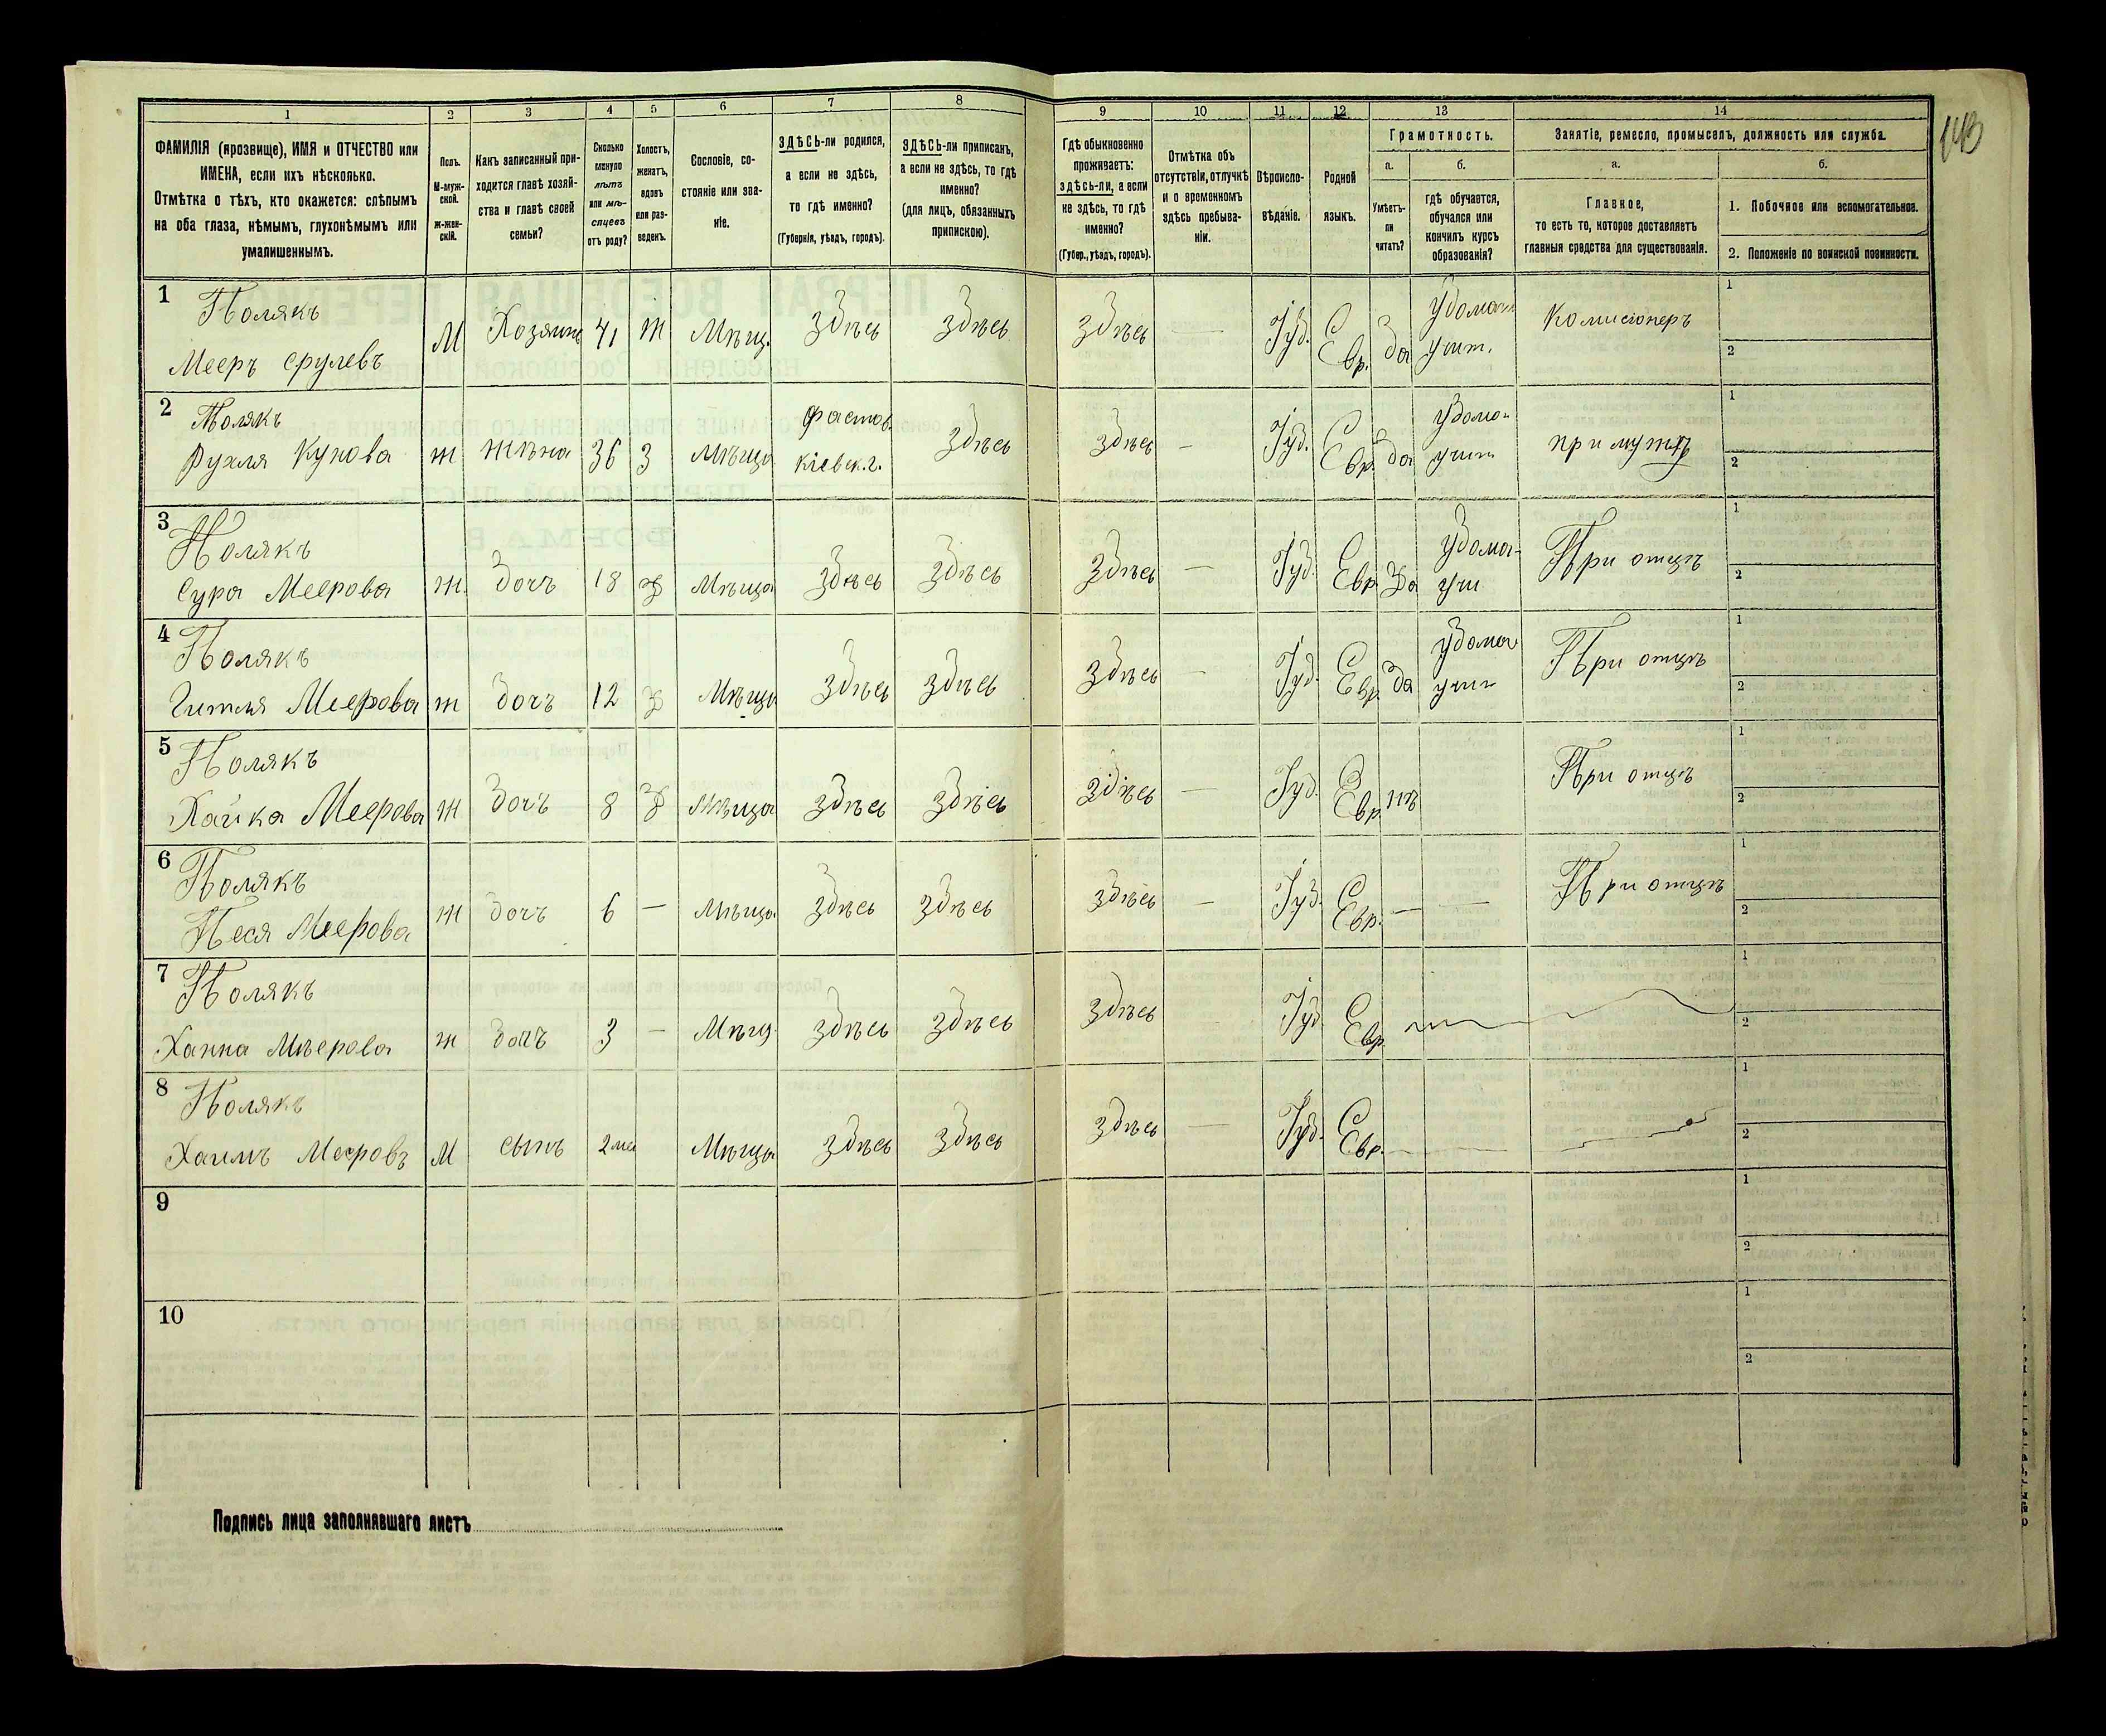 1
2
3
4
5
6
7
8
9
10
11
12
13
14
ФАМИЛІЯ (прозвище), ИМЯ и ОТЧЕСТВО или
ИМЕНА, если ихъ нѣсколько.
Отмѣтка о тѣхъ, кто окажется: слѣпымъ
на оба глаза, нѣмымъ, глухонѣмымъ или
умалишеннымъ.
Полъ.
М-муж-
ской.
ж-жен-
скій.
Какъ записанный при-
ходится главѣ хозяй-
ства и главѣ своей
семьи?
Сколько
минуло
лѣтъ
или мѣ-
сяцевъ
отъ роду?
Холостъ,
женатъ,
вдовъ
или раз-
веденъ.
Сословіе, со-
стояніе или зва-
ніе.
ЗДѢСЬ-ли родился,
а если не здѣсь,
то гдѣ именно?
(Губернія, уѣздъ, городъ).
ЗДѢСЬ-ли приписанъ,
а если не здѣсь, то гдѣ
именно?
(для лицъ, обязанныхъ
припискою).
Гдѣ обыкновенно
проживаетъ:
здѣсь-ли, а если
не здѣсь, то гдѣ
именно?
(Губер., уѣздъ, городъ).
Отмѣтка объ
отсутствіи, отлучкѣ
и о временномъ
здѣсь пребыва-
ніи.
Вѣроиспо-
вѣданіе.
Родной
языкъ.
Грамотность.
а.
б.
Умѣетъ-
ли
читать?
гдѣ обучается,
обучался или
кончилъ курсъ
образованія?
Занятіе, ремесло, промыселъ, должность или служба.
а.
б.
Главное,
то есть то, которое доставляетъ
главныя средства для существованія.
1. Побочное или вспомогательное.
2. Положеніе по воинской повинности.
143
1 Полякъ
Мееръ Срулевъ М Хозяинъ 41 ж Мѣщ. Здѣсь Здѣсь Здѣсь — Іуд. Евр. да учит. Комисіонеръ 1 2
2 Полякъ
Рухля Кунова ж жѣна 36 З Мѣща Фастов. Кіевск. г. Здѣсь Здѣсь — Іуд. Евр да учит при мужѣ 1 2
3 Полякъ
Сура Меерова ж. дочь 18 Мѣща Здѣсь Здѣсь Здѣсь — Іуд. Евр да учи При отцѣ 1 2
4 Полякъ
Гитля Меерова ж дочь 12 Мѣща Здѣсь Здѣсь Здѣсь — Іуд. Евр. да учит При отцѣ 1 2
5 Полякъ
Хайка Меерова ж дочь 8 Мѣща Здѣсь Здѣсь Здѣсь — Іуд. Евр. нѣ При отцѣ 1 2
6 Полякъ
Песя Меерова ж дочь 6 — Мѣща. Здѣсь Здѣсь Здѣсь — Іуд. Евр. — — При отцѣ 1 2
7 Полякъ
Ханна Мѣерова ж дочь 3 — Мѣщ. Здѣсь Здѣсь Здѣсь Іуд. Евр. 1 2
8 Полякъ
Хаимъ Мееровъ М сынъ 2 ме Мѣща Здѣсь Здѣсь Здѣсь — Іуд. Евр. 1 2
9 1 2
10 1 2
Подпись лица заполнявшаго листъ